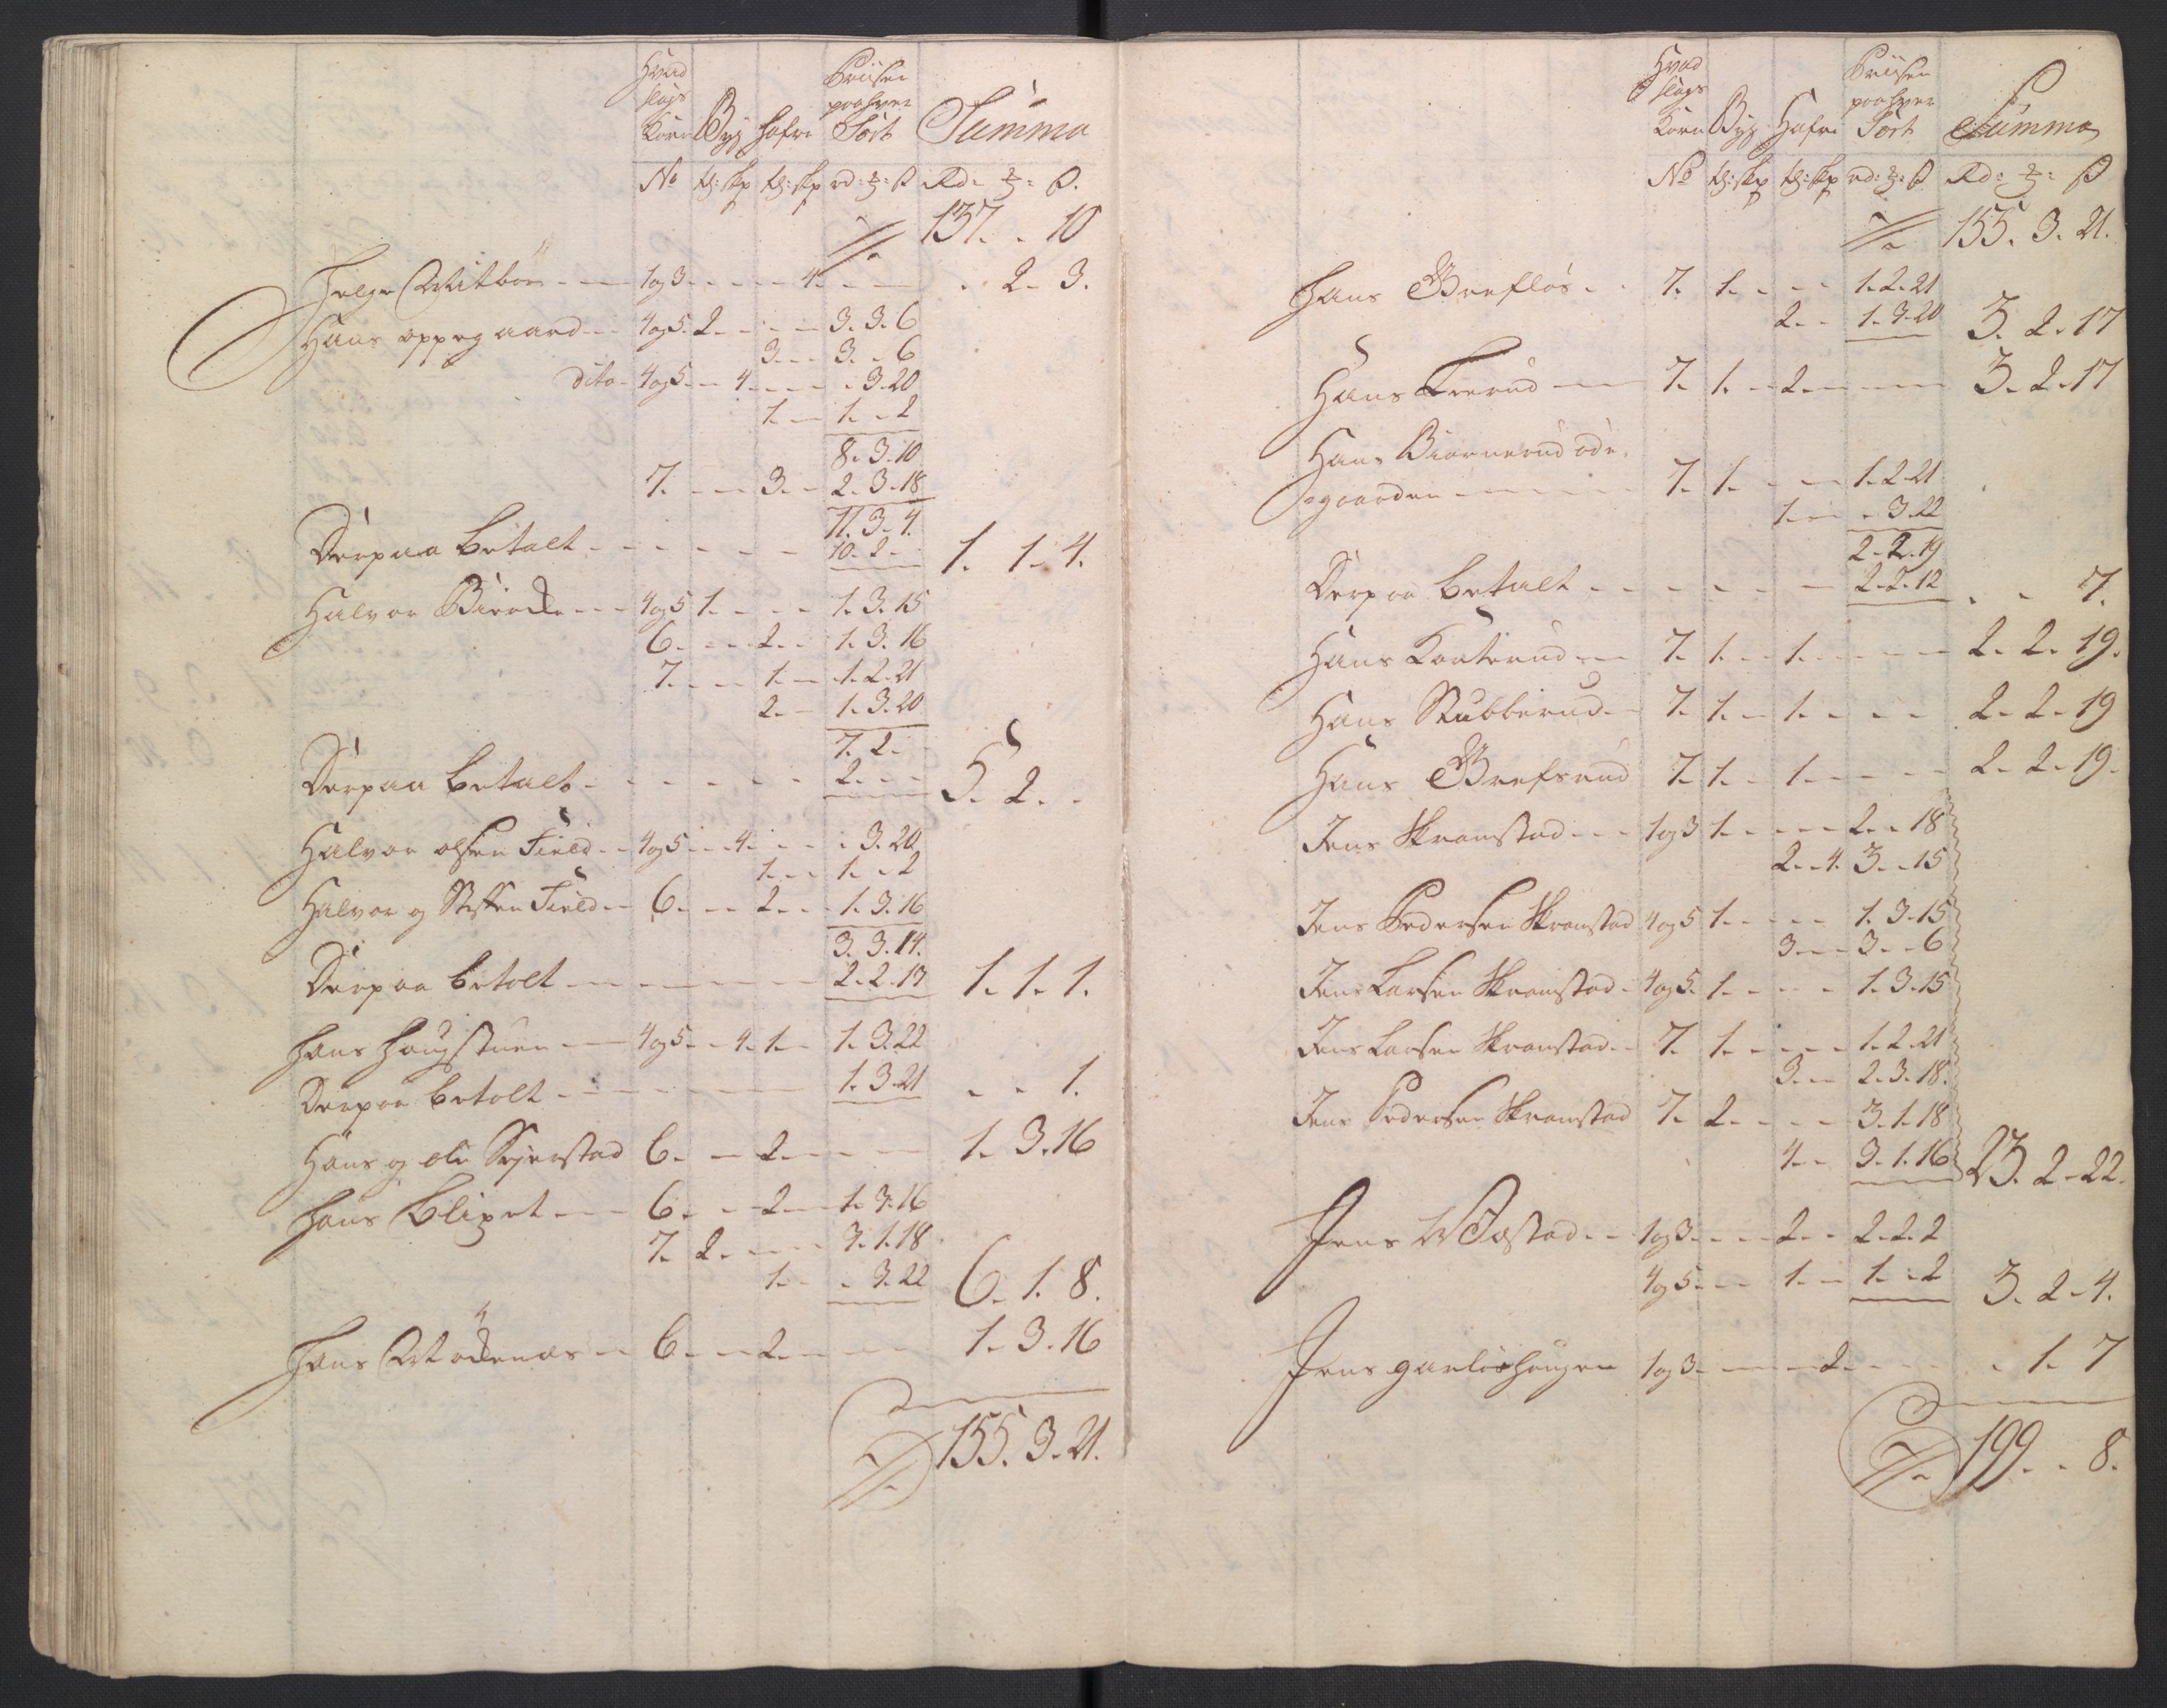 Hvad
slags
Korn Byg Hafre Priisen
paa hver
Sort Summa
No td: skp td: skp rd: ß Rd: ß.
137. - 10
Helge - - 1 og 3 - - - - 4. - - - 2 - 3.
Hans oppegaard - - 4 og 5. 2. - - - 3. 3. 6
3. - - 3. - 6
dito - 4 og 5 - - 4. - - - - 3. 20
1. - 1. - 2
8. 3. 10
7. - - - 3. - 2. 3. 18
11. 3. 4.
Derpaa betalt - - - - - - 10. 2 - 1. 1. 4.
Halvor - - - 4 og 5 1. - - - 1. 3. 15
6. - - - 2. - - 1. 3. 16
7. - - - 1. - 1. 2. 21
2. - 1. 3. 20
7. 2. -
Derpaa betalt - - - - - - 2. - - 5. 2. -
Halvor olsen Field - - 4 og 5 - - 4. - - - 3. 20
1. - - 1. - 2
Halvor og Steffen Field - - 6. - - 2. - - 1. 3. 16
3. 3. 14.
Derpaa betalt - - - - - - 2. 2. 13 1. 1. 1.
Hans Haugstuen - - 4 og 5 - - 4. 1 - 1. 3. 22
Derpaa betalt - - - - - - 1. 3. 21 - - 1.
Hans og ole Sejerstad 6. - - 2. - - - 1. 3. 16
Hans Klipet - - 6. - - 2 - - 1. 3. 16
7. 2. - - - 3. 1. 18
1. - - 3. 22 6. 1. 8.
Hans - - 6. - - 2. - - - 1. 3. 16
155. 3. 21.
Hvad
slags
Korn Byg Hafre Priisen
paa hver
Sort Summa
No td: skp td: skp rd: ß Rd: ß
155. 3. 21.
Hans Brefløs - - 7. 1. - - - 1. 2. 21
2. - 1. 3. 20 3. 2. 17
Hans - - 7. 1. - 2. - - - 3. 2. 17
Hans Biørnerud øde-
gaarden - - - - 7. 1. - - - 1. 2. 21
1. - - 3. 22
2. 2. 19
Derpaa betalt - - - - - - 2. 2. 12 - - 7.
Hans Korterud - - 7. 1. - 1. - - - 2. 2. 19.
Hans Stubberud - 7. 1. - 1. - - - 2. 2. 19
Hans Brefsrud 7. 1. - 1. - - - 2. 2. 19.
Jens Skranstad - - 1 og 3 1. - - - 2. - 18
2. - 4. 3. - 15
Jens Pedersen Skranstad 4 og 5 1. - - - 1. 3. 15
3. - - 3. - 6
Jens Larsen Skranstad - 4 og 5. 1. - - - 1. 3. 15
Jens Larsen Skranstad - - 7. 1. - - - 1. 2. 21
3. - - 2. 3. 18.
Jens Pedersen Skranstad 7. 2. - - - 3. 1. 18
4. - 3. 1. 16 23. 2. 22.
Jens - - 1 og 3 - - - 2. - 2. 2. 2
4 og 5. - - 1. - 1. - 2 3. 2. 4.
Jens garlishaugen 1 og 3. - - - 2. - - - - 1. 7
199. - 8.